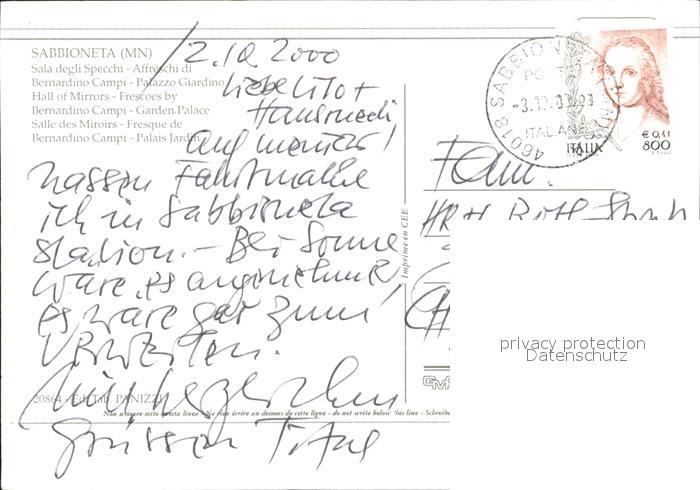 SABBIONETA (MN)
Sala degli Specchi - Affreschi di
Bernardino Campi - Palazzo Giardino
Hall of Mirrors - Frescoes by
Bernardino Campi - Garden Palace
Salle des Miroirs - Fresque de
Bernardino Campi - Palais Jardin
2.10.2000
Liebe Lilo +
Hansruedi
auf meiner
nassen Fahrt mache
ich in Sabbioneta
Station. - Bei Sonne
wäre es angenehmer
es wäre gar zum
Verweilen.
Mit herzlichen
Grüssen
20864 - Ed. Tab. PANIZZI
Non scrivere sotto questa linea - Ne rien écrire au dessous de cette ligne - do not write below this line - Schreiben
Imprimé en CEE
46018 SABBIONETA
POSTE
ITALIANE
ITALIA
€ 0,41
800
Fam.
privacy protection
Datenschutz